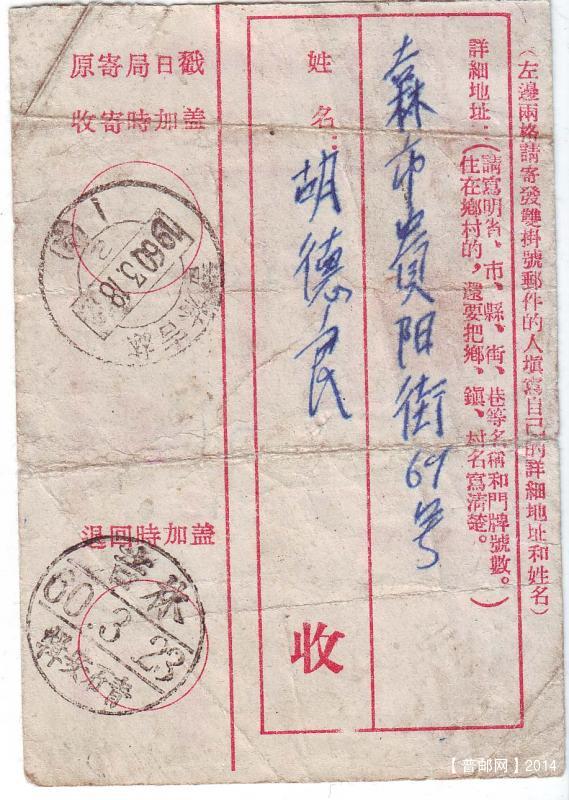 (左邊兩格請寄發雙掛號郵件的人填寫自己的詳細地址和姓名)
詳細地址:(請寫明省、市、縣、街、巷等名稱和門牌號數。
住在鄉村的,還要把鄉、鎮、村名寫清楚。)
市貴阳街69号
姓名:
胡德民
收
原寄局日戳
收寄時加盖
1960.3.18
吉林
退回時加盖
吉林
60.3.23
【普邮网】2014